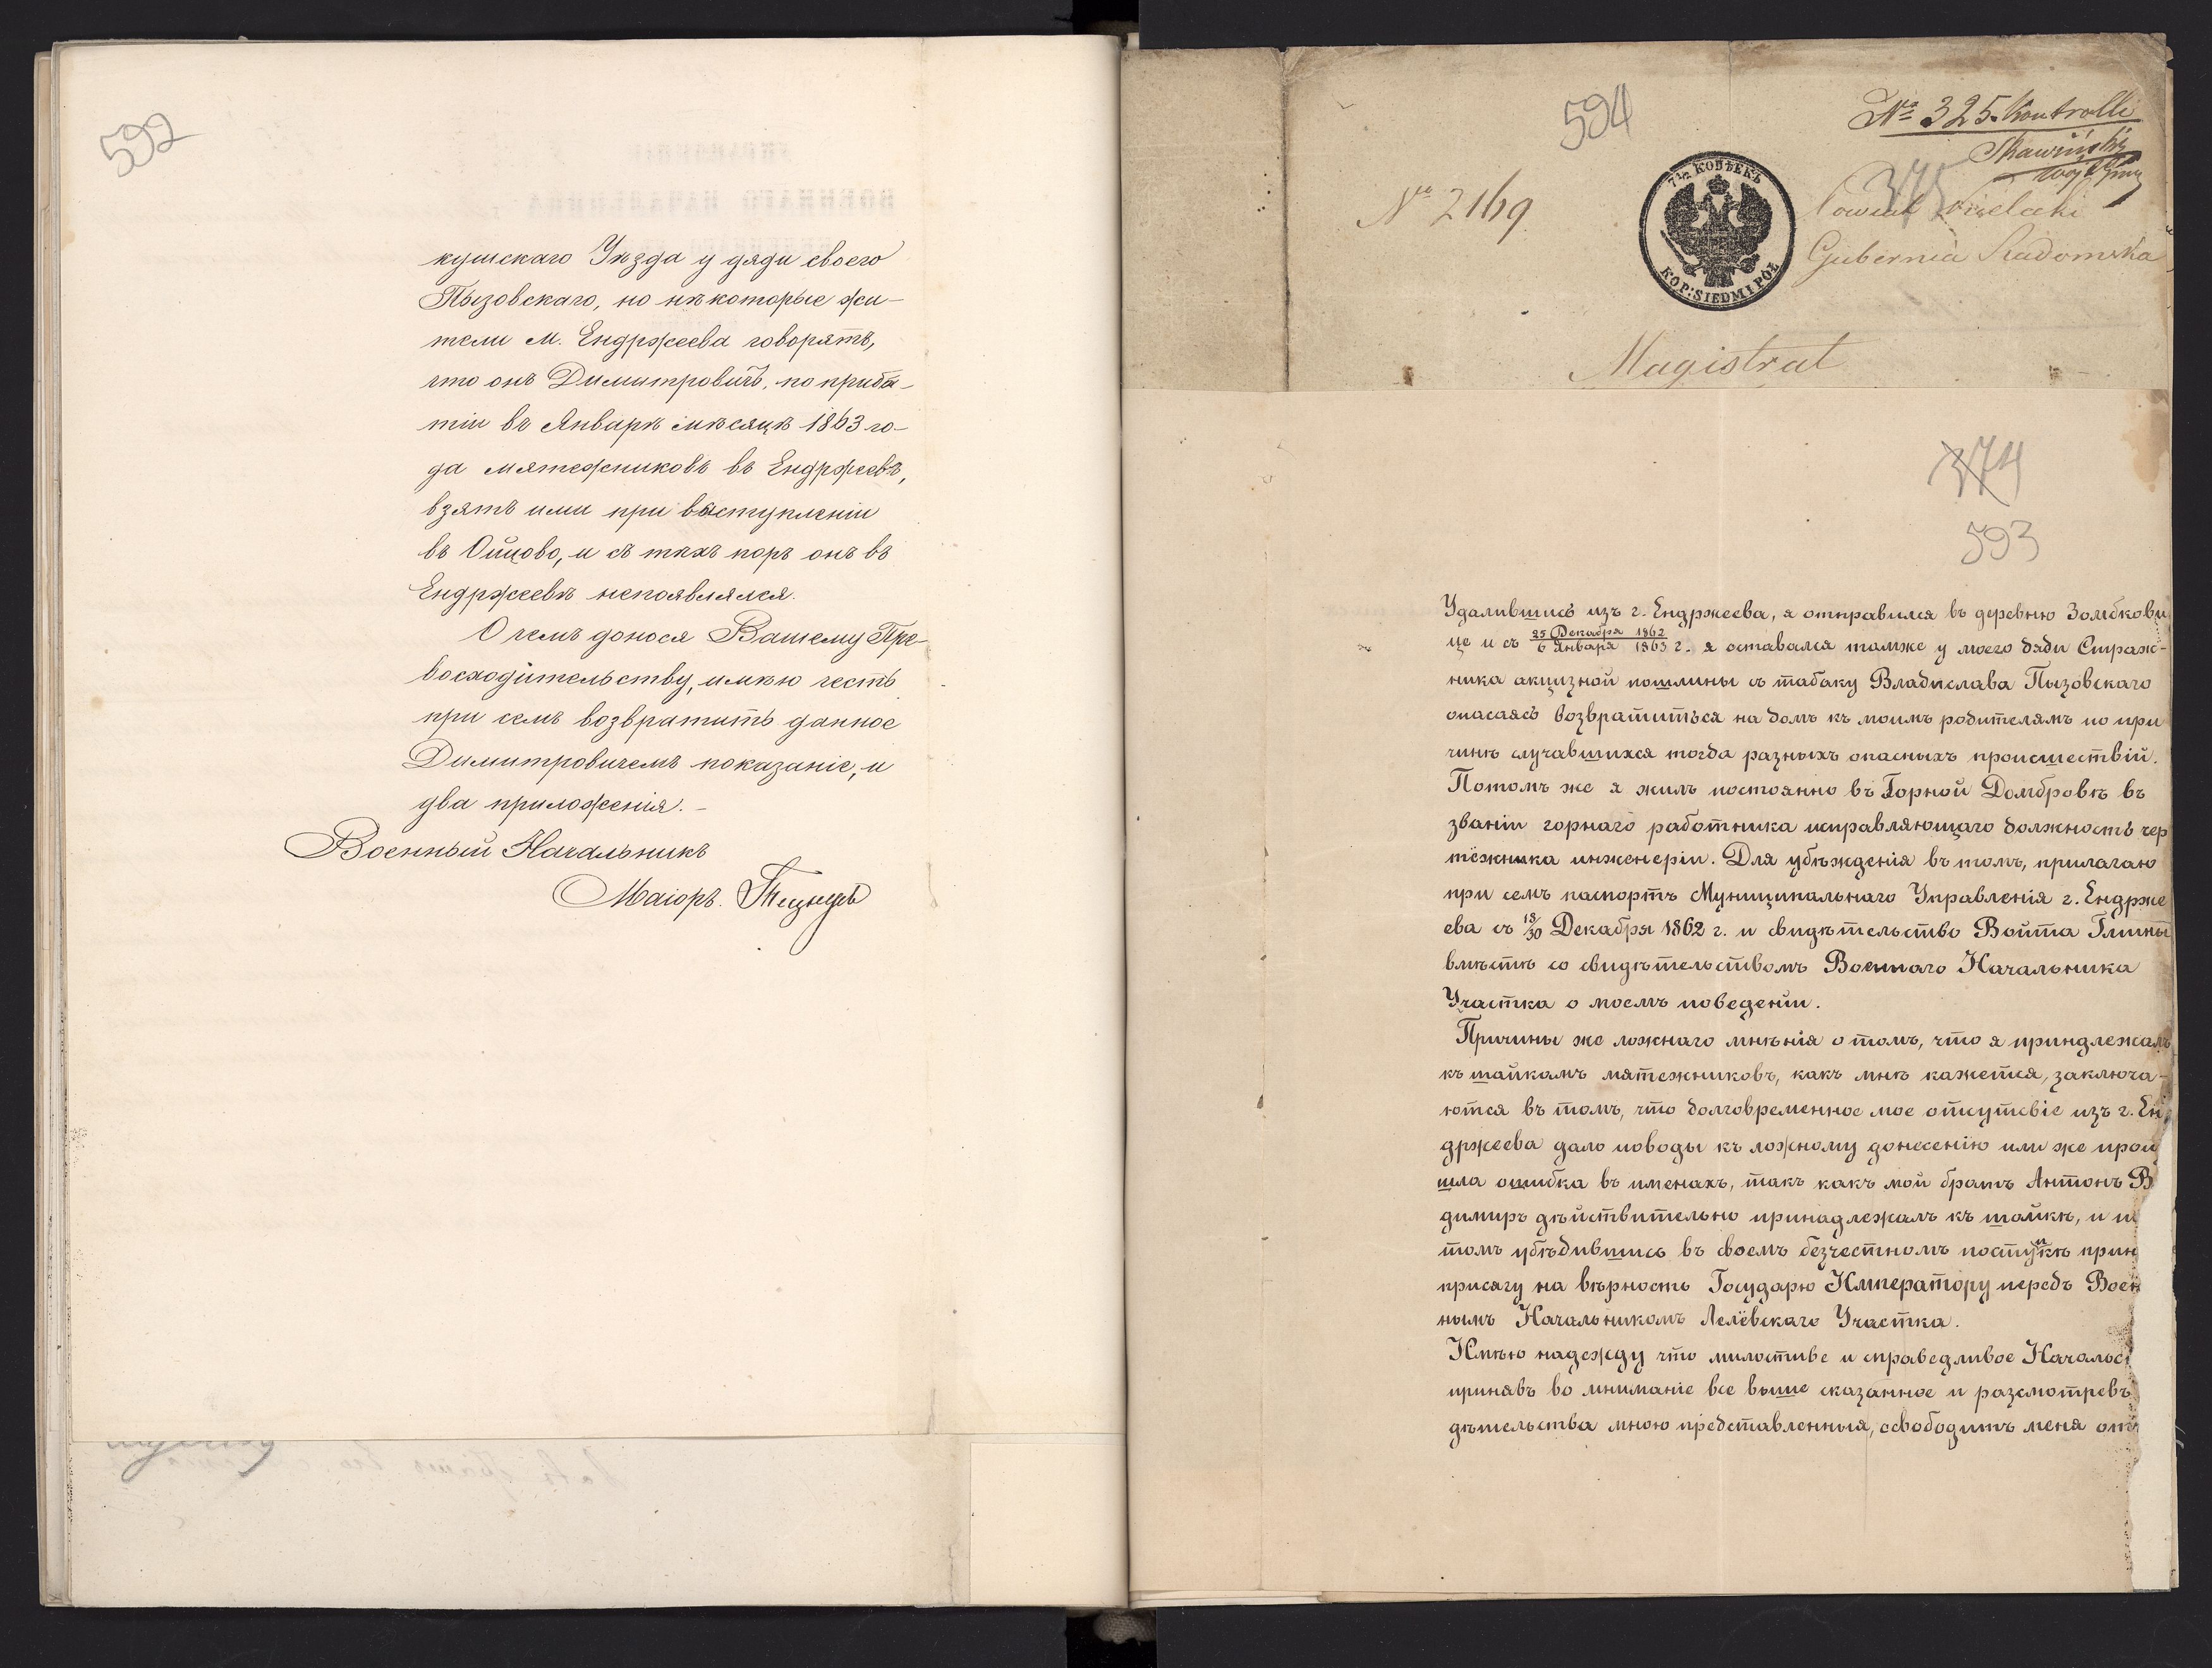 592
кушскаго Уѣзда у дяди своего
Пызовскаго, но нѣкоторые жи-
тели м. Енджеева говорятъ,
что онъ Димитровичъ, по прибы-
тіи въ Январѣ мѣсяцѣ 1863 го-
да мятежниковъ въ Ендржеевъ,
взятъ ими при выступленіи
въ Ойцово, и съ тѣхъ поръ онъ въ
Ендржеевѣ непоявлялся.
О чемъ донося Вашему Пре-
восходительству, имѣю честь
при семъ возвратить данное
Димитровичемъ показаніе, и
два приложенія.-
Военный Начальникъ
Маіоръ.
594
№ 325 Kontrolli
№ 2169
7½ КОПѢЕКЪ
KOP: SIEDMIPÓŁ
375
Powiat Kielecki
Gubernia Radomska
Magistrat
374
593
Удалившись изъ г. Ендржеева, я отправился въ деревню Зомбкови
це и съ 25 Декабря 1862 / 6 Января 1863 г. я оставался тамже у моего дяди Страж-
ника акцизной пошлины съ табаку Владислава Пызовскаго
опасаясь возвратиться на домъ къ моимъ родителямъ по при
чинѣ случавшихся тогда разныхъ опасныхъ происшествій.
Потомъ же я жилъ постоянно въ Горной Домбровѣ въ
званіи горнаго работника исправляющаго должность чер
тёжника инженеріи. Для убѣжденія въ томъ, прилагаю
при семъ паспортъ Муниципальнаго Управленія г. Ендрже
ева съ 18/30 Декабря 1862 г. и свидѣтельство Войта Гмины
вмѣстѣ со свидѣтельствомъ Военнаго Начальника
Участка о моемъ поведеніи.
Причины же ложнаго мнѣнія о томъ, что я приндлежалъ
къ шайкамъ мятежниковъ, какъ мнѣ кажется, заключа-
ются въ томъ, что долговременное мое отсутсвіе изъ г. Ен
држеева дало поводы къ ложному донесенію или же прои
шла ошибка въ именахъ, такъ какъ мой братъ Антонъ В
димиръ дѣйствительно принадлежалъ къ шайкѣ, и п
томъ убѣдившись въ своемъ безчестномъ поступкѣ прин
присягу на вѣрность Государю Императору передъ Воен
нымъ Начальникомъ Лелёвскаго Участка.
Имѣю надежду что милостиве и справедливое Начальс
принявъ во мниманіе все выше сказанное и разсмотревъ
дѣтельства мною представленныя, освободитъ меня отъ